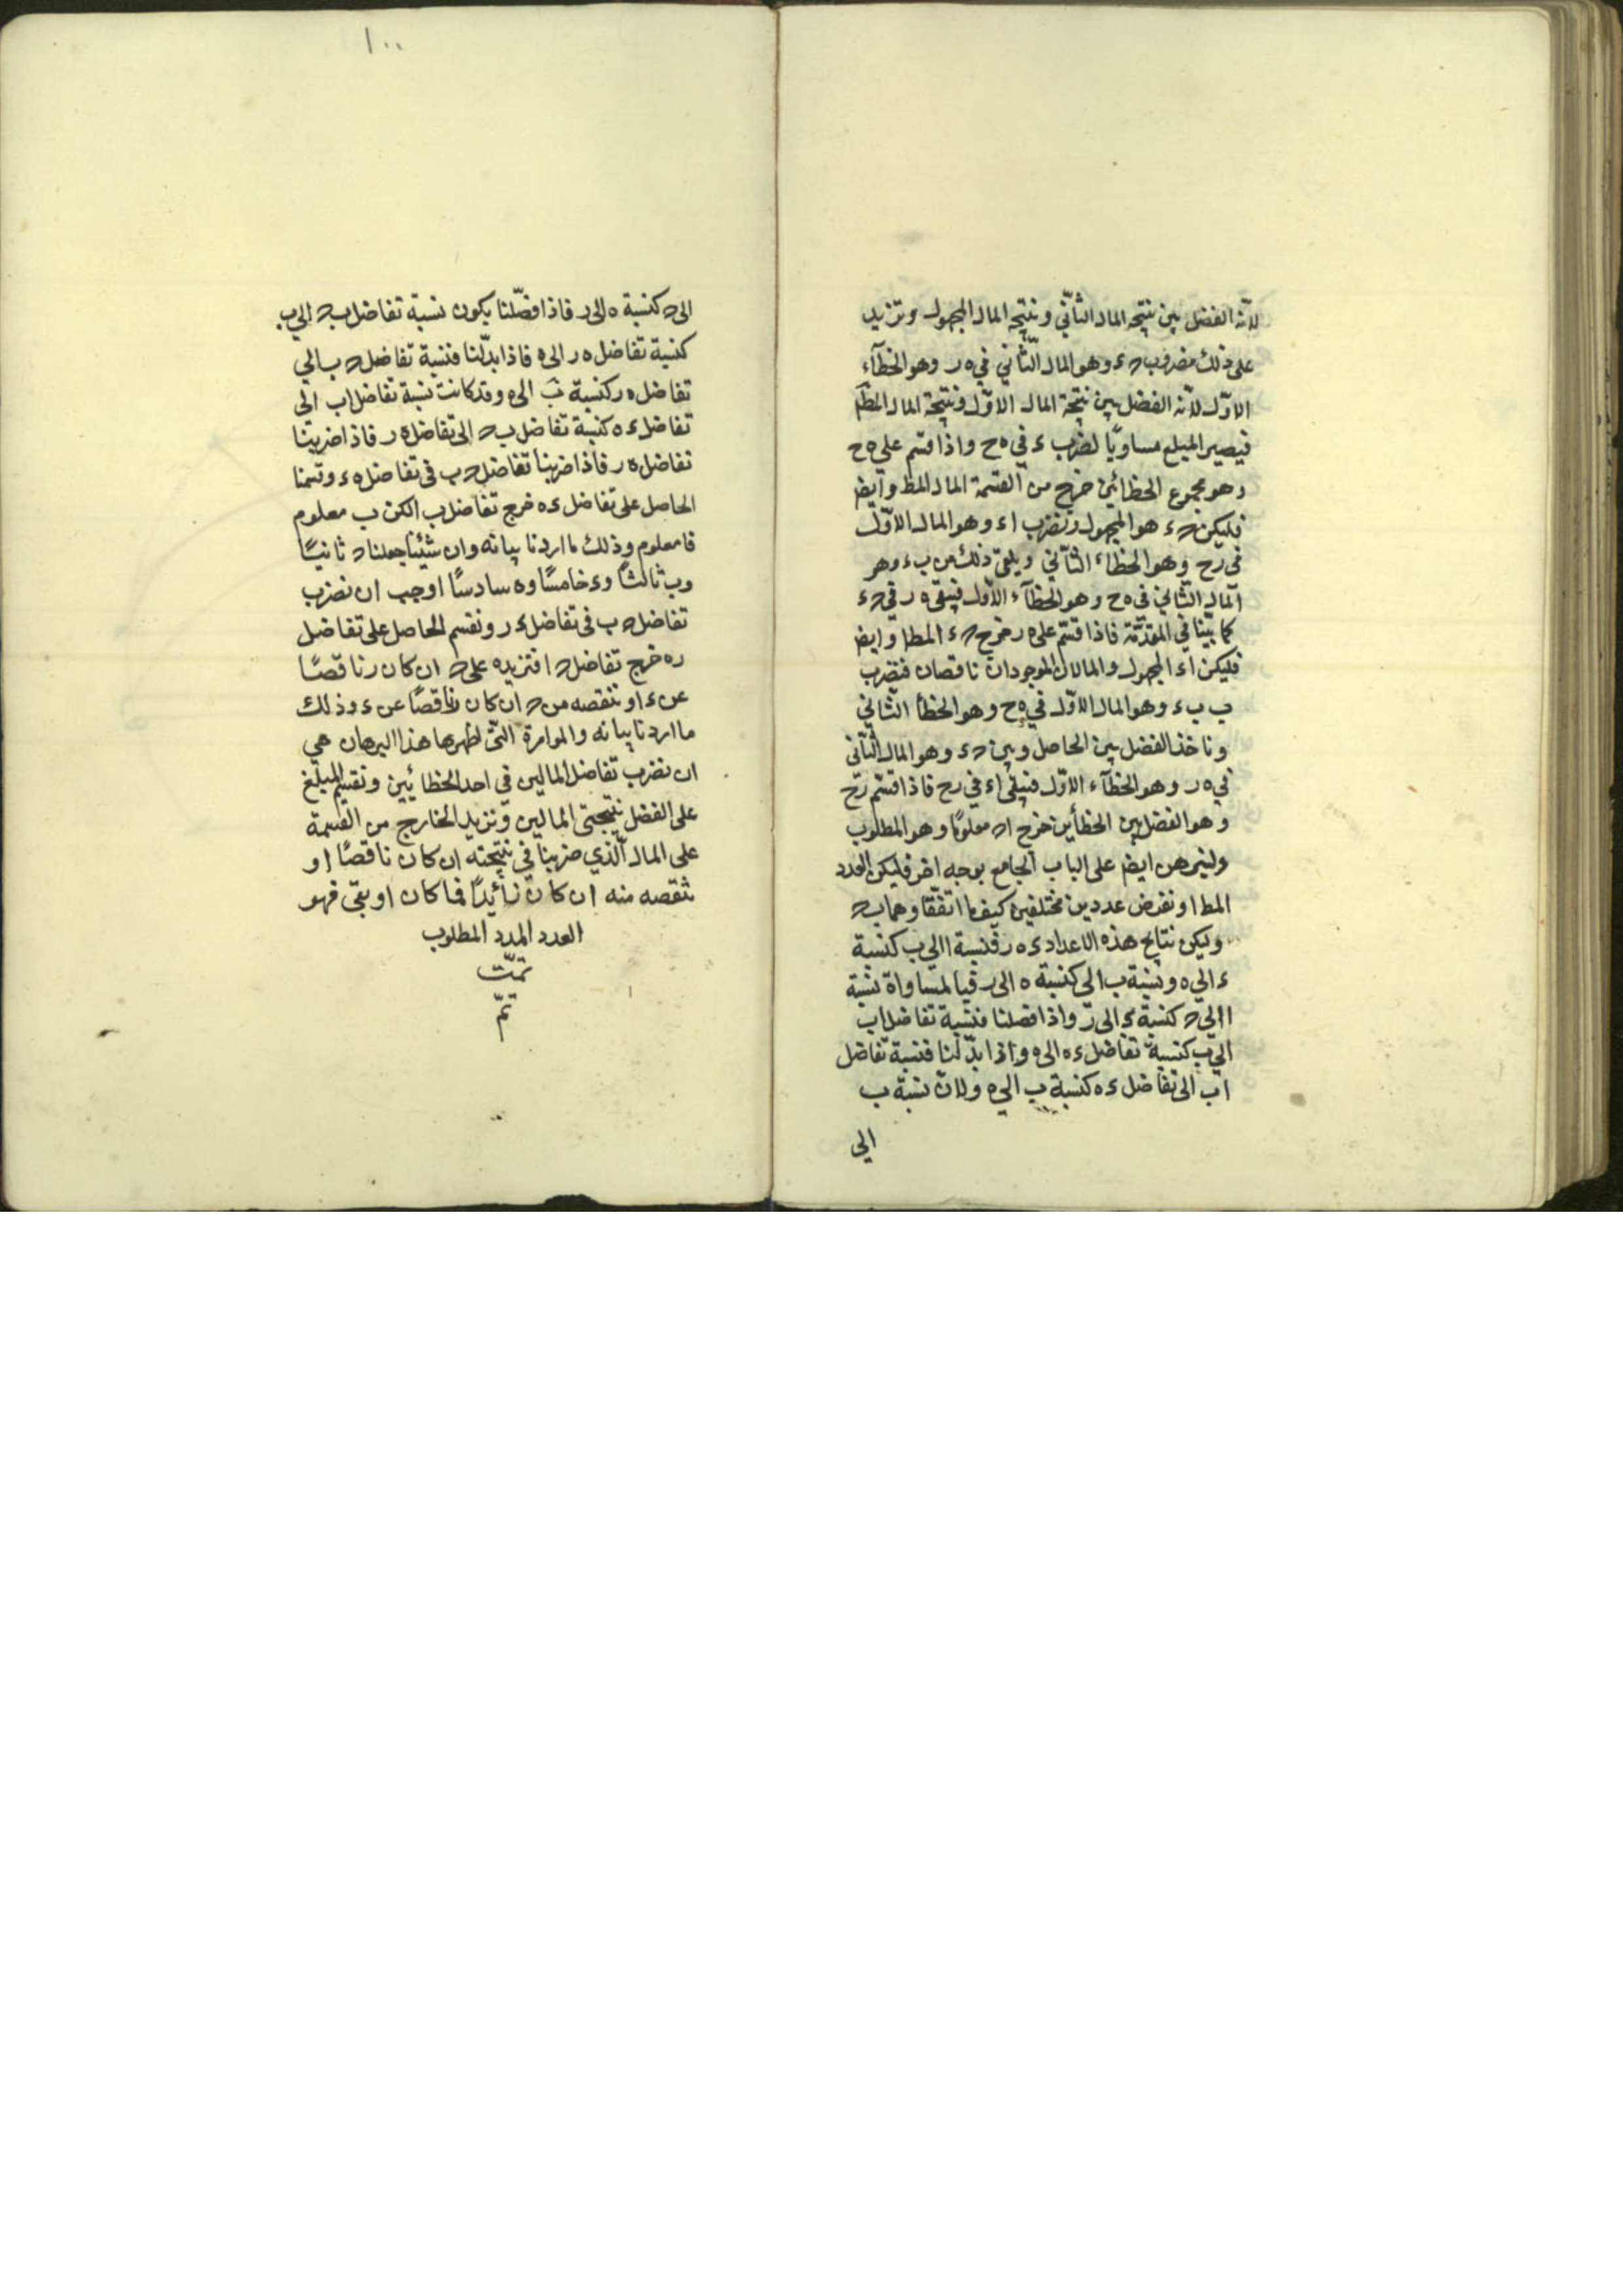 لانه الفضل بين نتيجة المال الثاني ونتيجة المال المجهول ونزيد
على ذلك مضروب حـ ء وهو المال الثاني في ه ر وهو الخطآء
الاول لانه الفضل بين نتيجة المال الاول ونتيجة المال المط
فيصير المبلغ مساويًا لضرب ء في ه ح واذا قسم على ه ح
وهو مجموع الخطائين خرج من القسمة المال المط وايض
فليكن حـ ء هو المجهول ونضرب ا ء وهو المال الاول
في رح وهو الخطاء الثاني ويلقى ذلك من ب ء وهو
المال الثاني في ه ح وهو الخطآء الاول فيبقى ه ر في حـ ء
كما بينا في المقدمة فاذا قسم على ه ر خرج حـ ء المط وايض
فليكن ا ء المجهول والمالان الموجودان ناقصان فنضرب
ب ب ء وهو المال الاول في ه ح وهو الخطأ الثاني
وناخذ الفضل بين الحاصل وبين حـ ء وهو المال الثاني
في ه ر وهو الخطآء الاول فيبقى ا ء في رح فاذا قسم رح
وهو الفضل بين الخطأين خرج ا حـ معلومًا وهو المطلوب
ولنبرهن ايض على الباب الجامع بوجه اخر فليكن العدد
المط ا ونفرض عددين مختلفين كيف ما اتفقا وهما ب حـ
وليكن نتايج هذه الاعداد ء ه ر فنسبة ا الي ب كنسبة
ء الي ه ونسبة ب الى كنسبة ه الى ر فبالمساواة نسبة
ا الي حـ كنسبة ء الى ر واذا فصلنا فنسبة تفاضل اب
الي ب كنسبة تفاضل ء ه الى ه واذا بدلنا فنسبة تفاضل
اب الى تفاضل ء ه كنسبة ب الي ه ولان نسبة ب
الى
١٠٠
الى حـ كنسبة ه الى ر فاذا فضّلنا يكون نسبة تفاضل ب حـ الي ب
كنسبة تفاضل ه ر الى ه فاذا بدّلنا فنسبة تفاضل حـ ب الي
تفاضل ه ر كنسبة ب الى ه وقد كانت نسبة تفاضل اب الى
تفاضل ء ه كنسبة تفاضل ب حـ الى تفاضل ه ر فاذا ضربنا
تفاضل ه ر فاذا ضربنا تفاضل حـ ب في تفاضل ه ء وقسمنا
الحاصل على تفاضل ء ه خرج تفاضل ب الكن ب معلوم
فا معلوم وذلك ما اردنا بيانه وان شئنا جعلنا حـ ثانيًا
وب ثالثًا وء خامسًا وه سادسًا اوجب ان نضرب
تفاضل حـ ب في تفاضل ء ر ونقسم الحاصل على تفاضل
ر ه خرج تفاضل حـ ا فنزيده على حـ ان كان ر ناقصًا
عن ء او ننقصه من حـ ان كان ناقصًا عن ء وذلك
ما اردنا بيانه والموامرة التى اظهرها هذا البرهان هي
ان نضرب تفاضل المالين في احد الخطائيين ونقسم المبلغ
على الفضل نتيجتى المالين ونزيد الخارج من القسمة
على المال الّذي ضربنا في نتيجته ان كان ناقصًا او
ننقصه منه ان كان زائدًا فما كان او بقى فهو
العدد المدد المطلوب
تمّت
تمّ